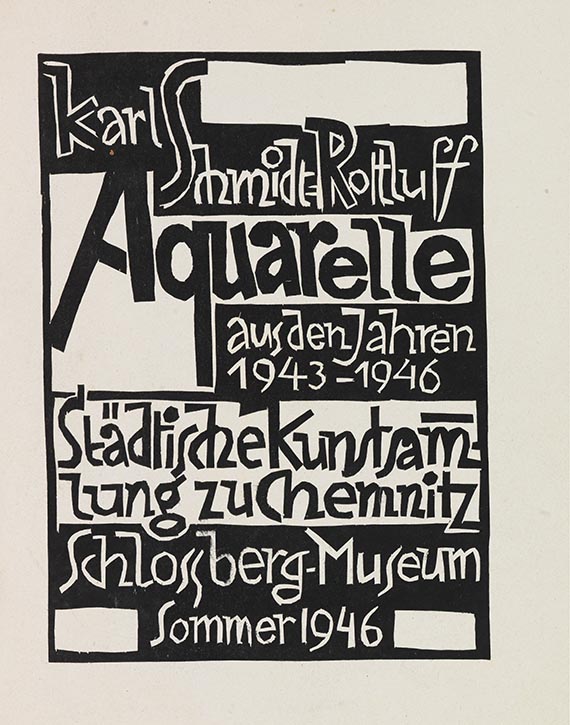 Karl Schmidt=Rottluff
Aquarelle
aus den Jahren
1943-1946
Städtische Kunstsam̅-
lung zu Chemnitz
Schlossberg-Museum
Sommer 1946